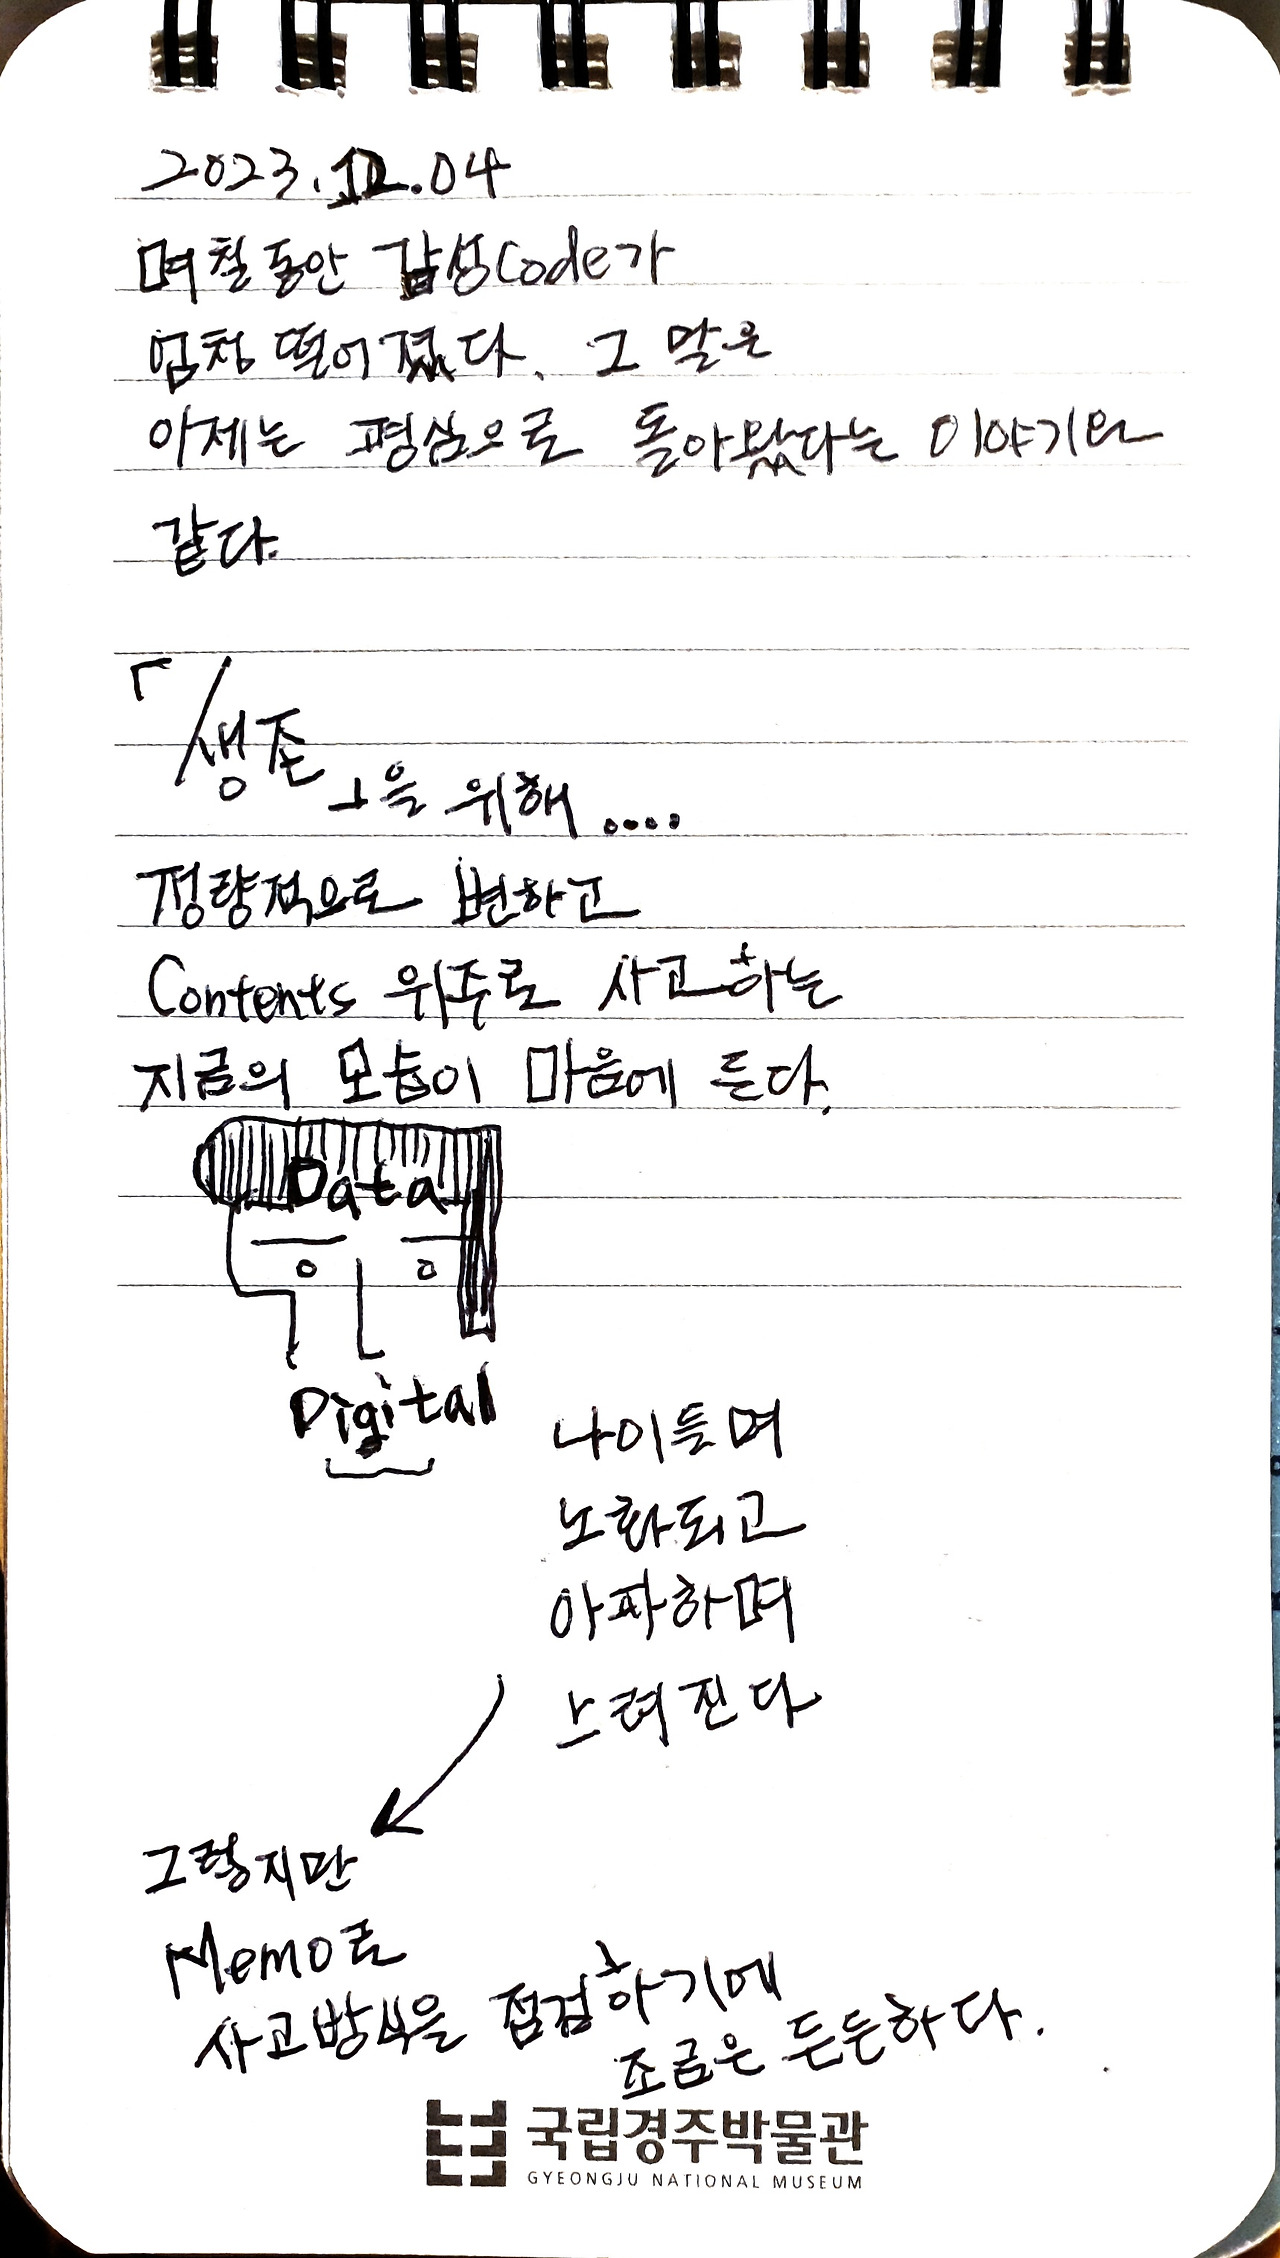 2023.12.04
며칠동안 감성Code가
엄청 떨어졌다. 그 말은
이제는 평심으로 돌아왔다는 이야기와
같다.
「생존
을 위해....
정량적으로 변하고
Contents 위주로 사고하는
지금의 모습이 마음에 든다.
Data
Digital
나이들며
노화되고
아파하며
느려진다
그렇지만
Memo로
사고방식을 점검하기에
조금은 든든하다.
국립경주박물관
GYEONGJU NATIONAL MUSEUM